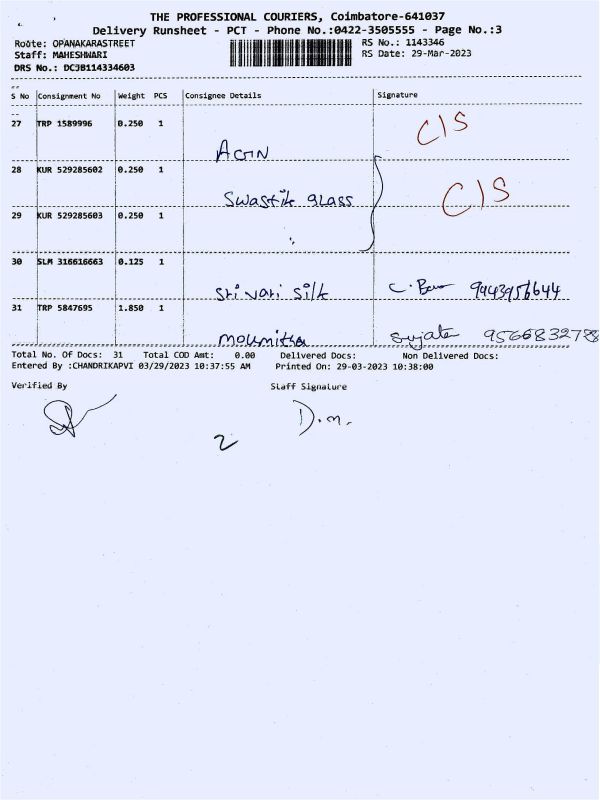 THE PROFESSIONAL COURIERS, Coimbatore-641037
Delivery Runsheet - PCT - Phone No.:0422-3505555 - Page No.:3
Route: OPANAKARASTREET RS No.: 1143346
Staff: MAHESHWARI RS Date: 29-Mar-2023
DRS No.: DCJB114334603
S No Consignment No Weight PCS Consignee Details Signature
27 TRP 1589996 0.250 1 C/S
28 KUR 529285602 0.250 1
Swastik glass C/S
29 KUR 529285603 0.250 1
30 SLM 316616663 0.125 1
Sri vari silk 9443956644
31 TRP 5847695 1.850 1
moumitha Sujata 9566832788
Total No. Of Docs: 31 Total COD Amt: 0.00 Delivered Docs: Non Delivered Docs:
Entered By :CHANDRIKAPVI 03/29/2023 10:37:55 AM Printed On: 29-03-2023 10:38:00
Verified By Staff Signature
D.m.
2